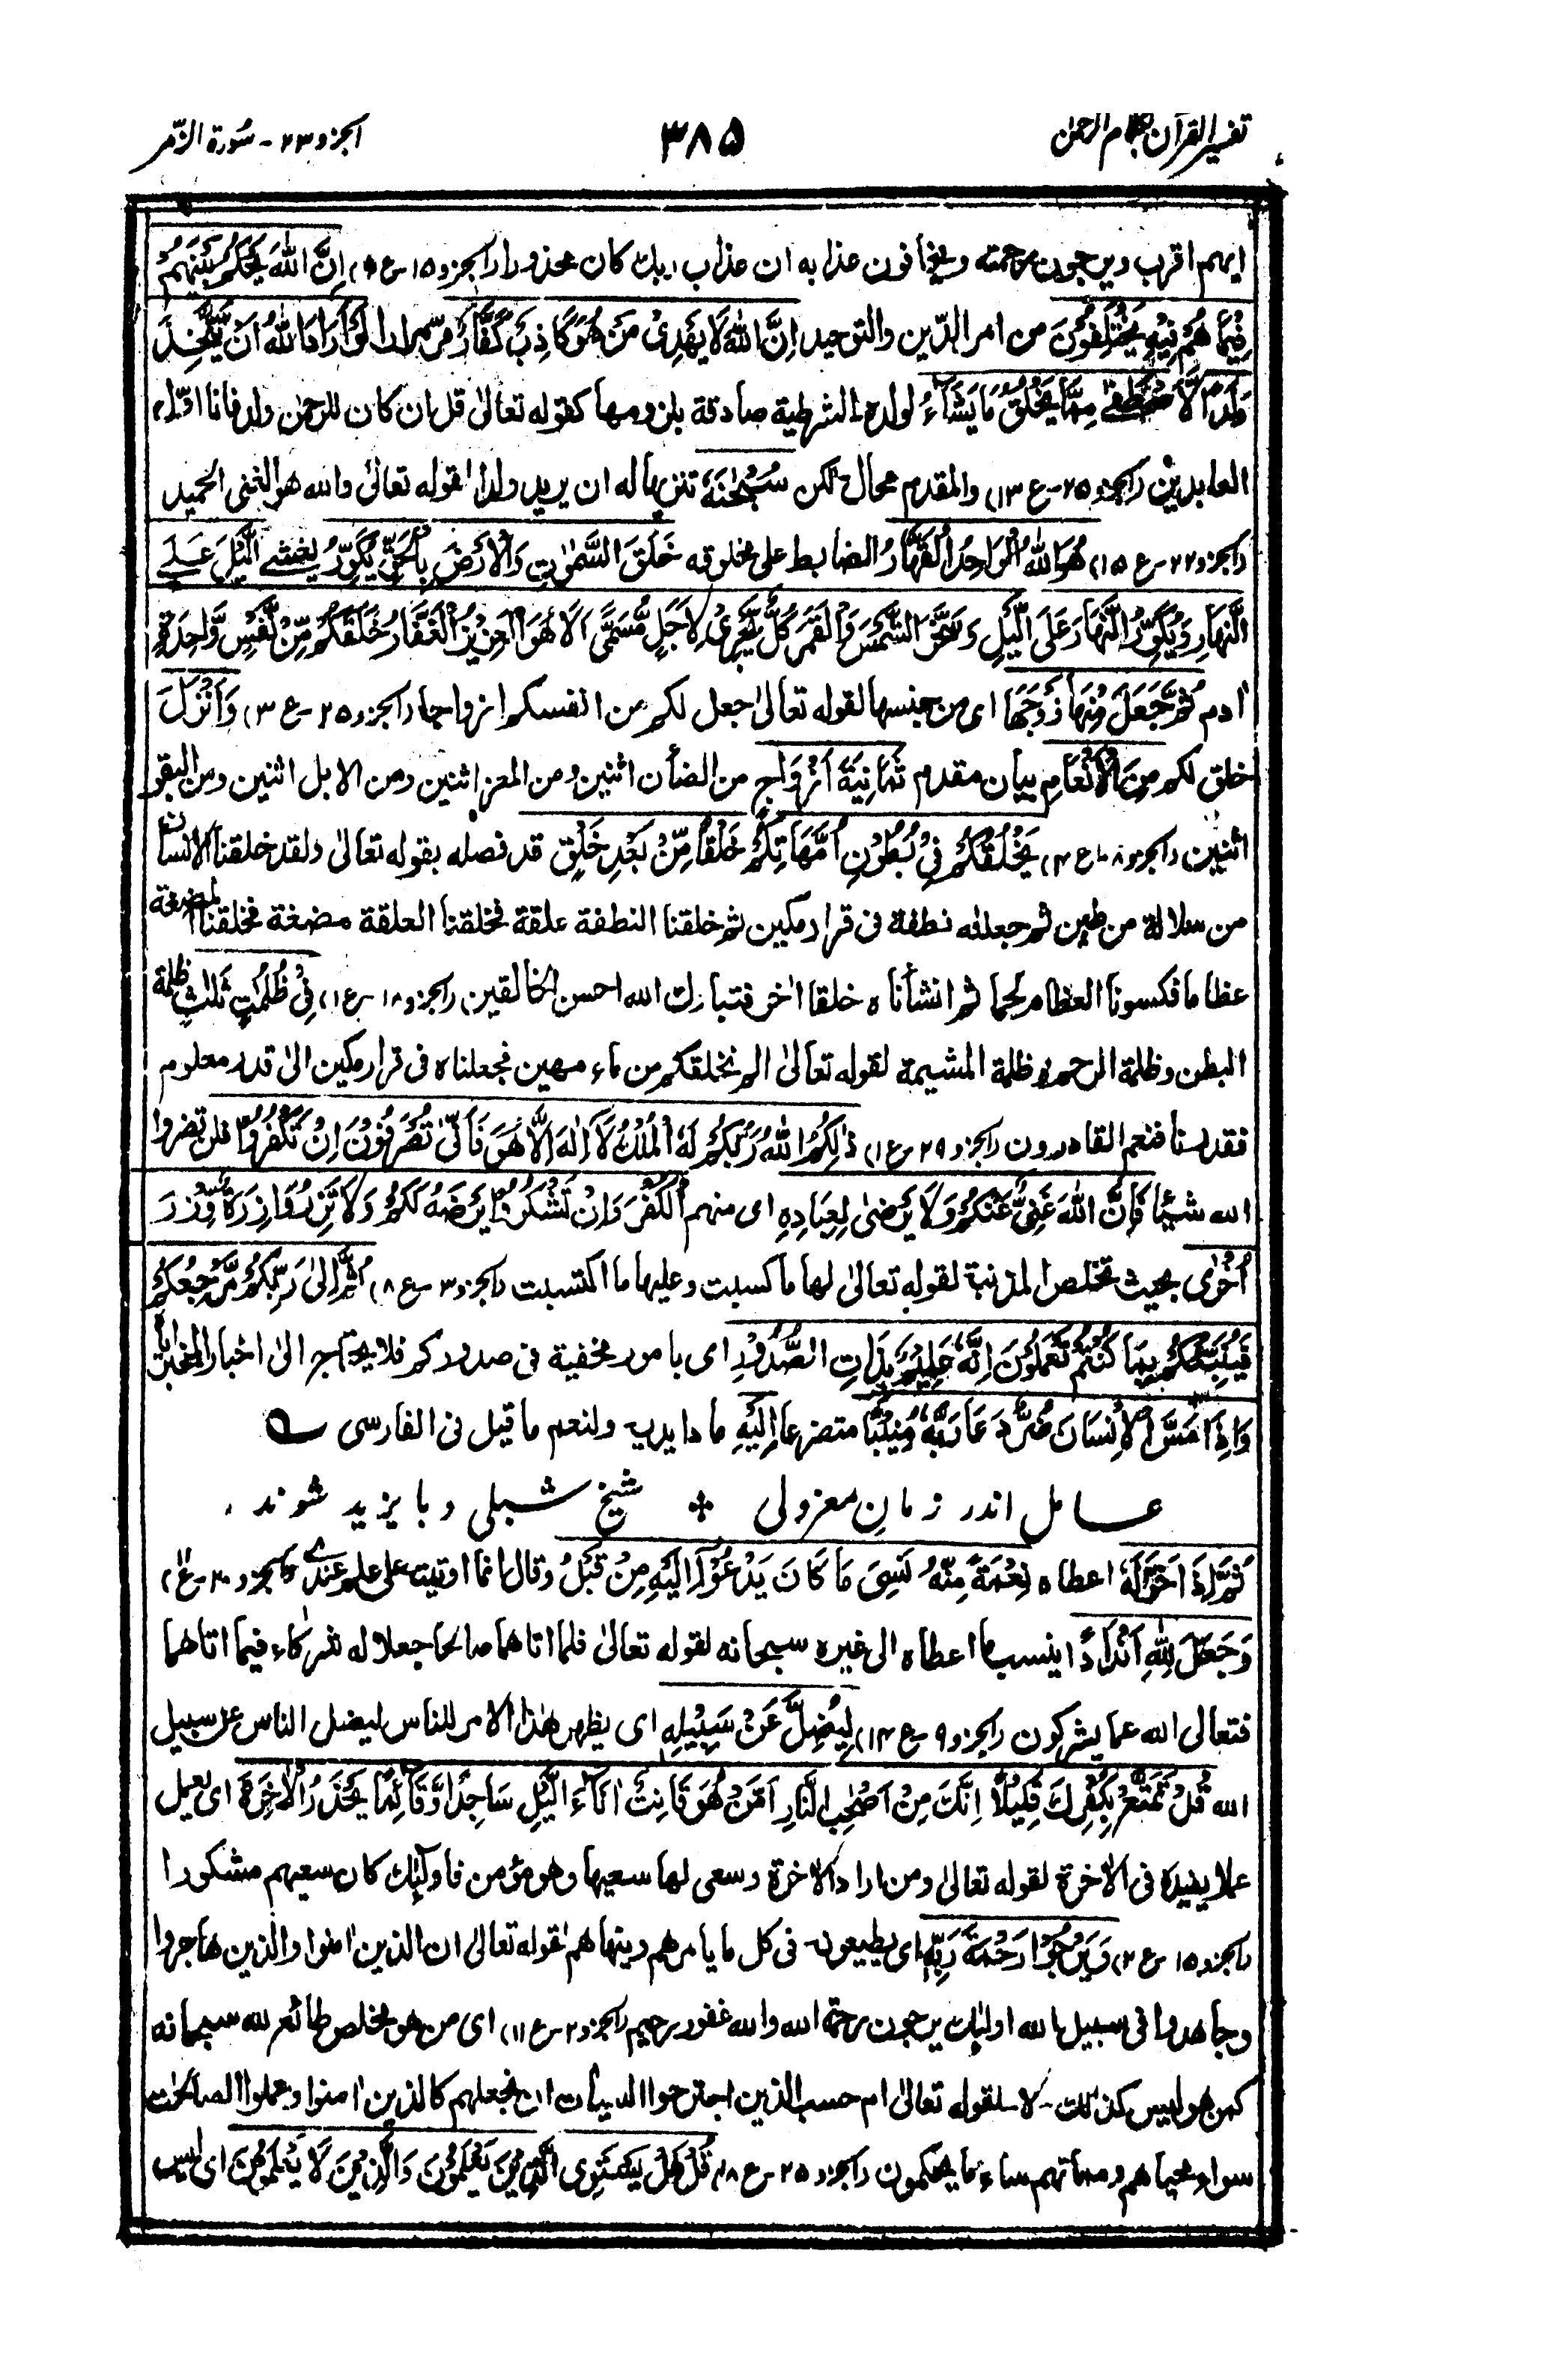 تفسير القرآن بكلام الرحمٰن
٣٨٥
الجزو ٢٣ - سُورة الزّمر
ايهم اقرب ويرجون رحمته ويخافون عذابه ان عذاب ربك كان محذورا (الجزو ١٥-ع ٦) اِنَّ اللّٰهَ يَحْكُمُ بَيْنَهُمْ
فِيْمَا هُمْ فِيْهِ يَخْتَلِفُوْنَ من امر الدّين والتوحيد اِنَّ اللّٰهَ لَا يَهْدِىْ مَنْ هُوَ كَاذِبٌ كَفَّارٌ مرّ مرارا لَوْ اَرَادَ اللّٰهُ اَنْ يَّتَّخِذَ
وَلَدًا لَّاصْطَفٰى مِمَّا يَخْلُقُ مَا يَشَآءُ لولده الشرطية صادقة بلزومها كقوله تعالىٰ قل ان كان للرحمٰن ولد فانا اوّل
العابدين (الجزو ٢٥-ع ١٣) والمقدم محال لكن سُبْحٰنَهٗ تنزيها له ان يريد ولدا لقوله تعالىٰ والله هو الغنى الحميد
(الجزو ٢٢-ع ١٥) هُوَ اللّٰهُ الْوَاحِدُ الْقَهَّارُ الضابط على مخلوقه خَلَقَ السَّمٰوٰتِ وَالْاَرْضَ بِالْحَقِّ يُكَوِّرُ يغشى الَّيْلَ عَلَى
النَّهَارِ وَيُكَوِّرُ النَّهَارَ عَلَى الَّيْلِ وَسَخَّرَ الشَّمْسَ وَالْقَمَرَ كُلٌّ يَّجْرِىْ لِاَجَلٍ مُّسَمًّى اَلَا هُوَ الْعَزِيْزُ الْغَفَّارُ خَلَقَكُمْ مِّنْ نَّفْسٍ وَّاحِدَةٍ
اٰدم ثُمَّ جَعَلَ مِنْهَا زَوْجَهَا اى من جنسها لقوله تعالىٰ جعل لكم من انفسكم ازواجا (الجزو ٢٥-ع ٣) وَاَنْزَلَ
خلق لكم مِنَ الْاَنْعَامِ بيان مقدم ثَمٰنِيَةَ اَزْوَاجٍ من الضأن اثنين ومن المعز اثنين ومن الابل اثنين ومن البقر
اثنين (الجزو ٨-ع ٤) يَخْلُقُكُمْ فِىْ بُطُوْنِ اُمَّهَاتِكُمْ خَلْقًا مِّنْۢ بَعْدِ خَلْقٍ قد فصله بقوله تعالىٰ ولقد خلقنا الانسان
من سلالة من طين ثم جعلناه نطفة فى قرار مكين ثم خلقنا النطفة علقة فخلقنا العلقة مضغة فخلقنا المضغة
عظاما فكسونا العظام لحما ثم انشأناه خلقا اٰخر فتبارك الله احسن الخالقين (الجزو ١٨-ع ١) فِىْ ظُلُمٰتٍ ثَلٰثٍ ظلمة
البطن وظلمة الرحم وظلمة المشيمة لقوله تعالىٰ الم نخلقكم من ماء مهين فجعلناه فى قرار مكين الىٰ قدر معلوم
فقدرنا فنعم القادرون (الجزو ٢٩-ع ١) ذٰلِكُمُ اللّٰهُ رَبُّكُمْ لَهُ الْمُلْكُ لَآ اِلٰهَ اِلَّا هُوَ فَاَنّٰى تُصْرَفُوْنَ اِنْ تَكْفُرُوْا فلن تضروا
الله شيئا فَاِنَّ اللّٰهَ غَنِىٌّ عَنْكُمْ وَلَا يَرْضٰى لِعِبَادِهِ اى منهم الْكُفْرَ وَاِنْ تَشْكُرُوْا يَرْضَهُ لَكُمْ وَلَا تَزِرُ وَازِرَةٌ وِّزْرَ
اُخْرٰى بحيث تخلص المذنبة لقوله تعالىٰ لها ما كسبت وعليها ما اكتسبت (الجزو ٣-ع ٨) ثُمَّ اِلٰى رَبِّكُمْ مَّرْجِعُكُمْ
فَيُنَبِّئُكُمْ بِمَا كُنْتُمْ تَعْمَلُوْنَ اِنَّهٗ عَلِيْمٌۢ بِذَاتِ الصُّدُوْرِ اى بامور مخفية فى صدوركم فلا يحتاج الىٰ اخبار المخبرين
وَاِذَا مَسَّ الْاِنْسَانَ ضُرٌّ دَعَا رَبَّهٗ مُنِيْبًا متضرعا اِلَيْهِ مادا يديه ولنعم ما قيل فى الفارسى
عامل اندر زمانِ معزولى ٭ شيخ شبلى و با يزيد شوند
ثُمَّ اِذَا خَوَّلَهٗ اعطاه نِعْمَةً مِّنْهُ نَسِىَ مَا كَانَ يَدْعُوْآ اِلَيْهِ مِنْ قَبْلُ وقال انما اوتيته على علم عندى (الجزو ٢٠-ع ١١)
وَجَعَلَ لِلّٰهِ اَنْدَادًا ينسب ما اعطاه الى غيره سبحانه لقوله تعالىٰ فلما اتاهما صالحا جعلا له شركاء فيما اتاهما
فتعالى الله عما يشركون (الجزو ٩-ع ١٤) لِيُضِلَّ عَنْ سَبِيْلِهٖ اى يظهر هٰذا الامر للناس ليضل الناس عن سبيل
الله قُلْ تَمَتَّعْ بِكُفْرِكَ قَلِيْلًا اِنَّكَ مِنْ اَصْحٰبِ النَّارِ اَمَّنْ هُوَ قَانِتٌ اٰنَآءَ الَّيْلِ سَاجِدًا وَّقَآئِمًا يَحْذَرُ الْاٰخِرَةَ اى يعمل
عملا يفيده فى الاٰخرة لقوله تعالىٰ ومن اراد الاخرة وسعى لها سعيها وهو مؤمن فاولٰٓئك كان سعيهم مشكورا
(الجزو ١٥-ع ٢) وَيَرْجُوْا رَحْمَةَ رَبِّهٖ اى يطيعون فى كل ما يامرهم وينهاهم لقوله تعالىٰ ان الذين اٰمنوا والذين هاجروا
وجاهدوا فى سبيل الله اولٰٓئك يرجون رحمة الله والله غفور رحيم (الجزو ٢-ع ١١) اى من هو مخلص طائع لله سبحانه
كمن هو ليس كذٰلك - لا - لقوله تعالىٰ ام حسب الذين اجترحوا السيئات ان نجعلهم كالذين اٰمنوا وعملوا الصالحٰت
سواء محياهم ومماتهم ساء ما يحكمون (الجزو ٢٥-ع ١٨) قُلْ هَلْ يَسْتَوِى الَّذِيْنَ يَعْلَمُوْنَ وَالَّذِيْنَ لَا يَعْلَمُوْنَ اى ليس